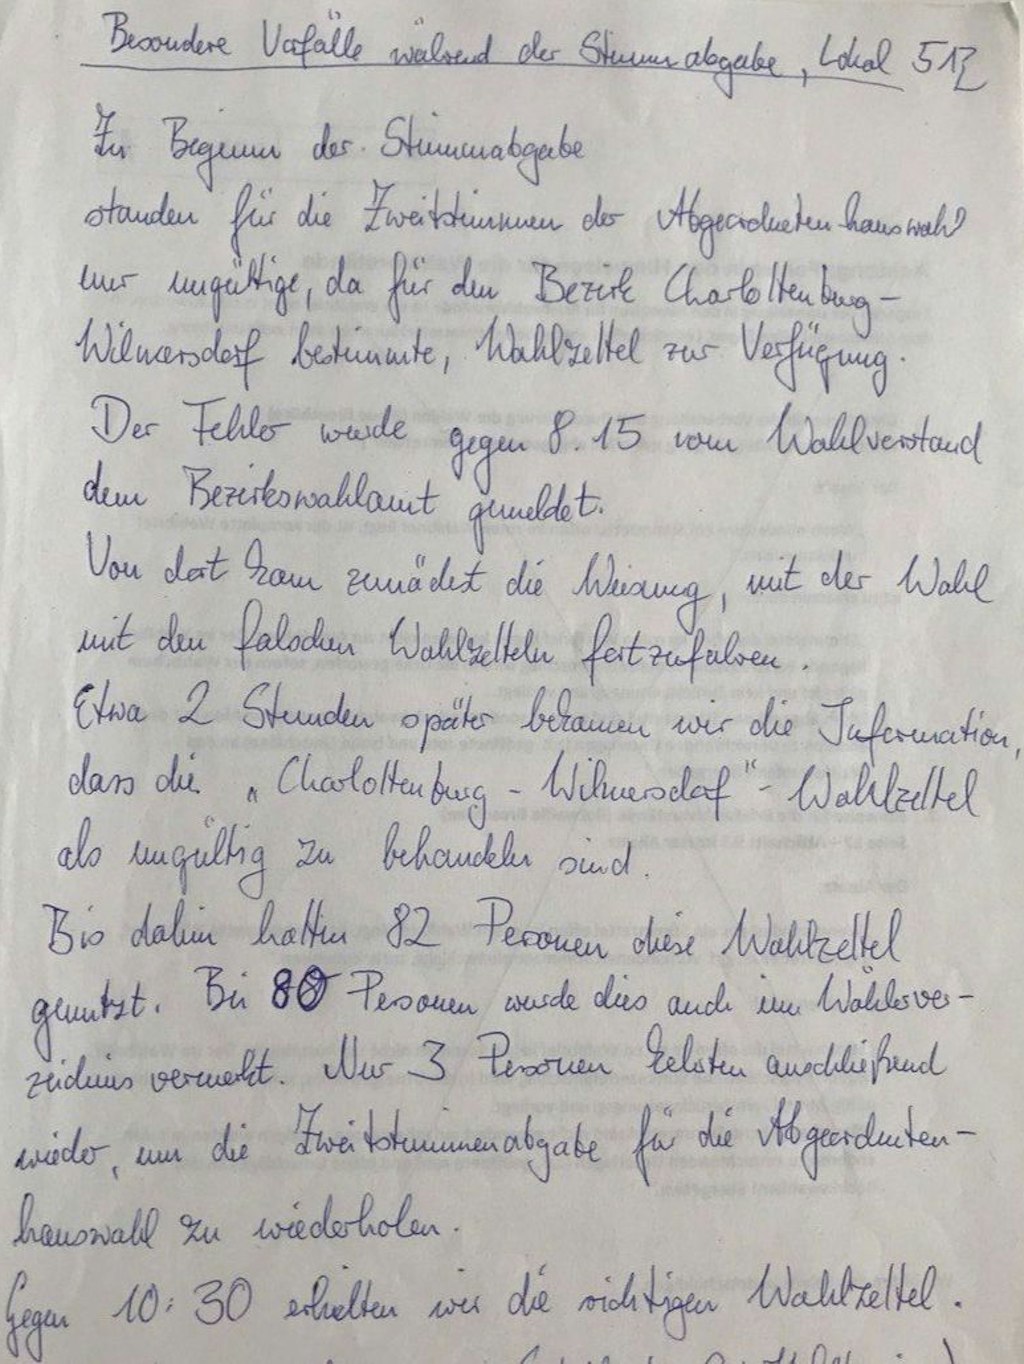 Besondere Vorfälle während der Stimmabgabe, Lokal 513
Zu Beginn der Stimmabgabe
standen für die Zweitstimmen der Abgeordnetenhauswahl
nur ungültige, da für den Bezirk Charlottenburg-
Wilmersdorf bestimmte, Wahlzettel zur Verfügung.
Der Fehler wurde gegen 8.15 vom Wahlvorstand
dem Bezirkswahlamt gemeldet.
Von dort kam zunächst die Weisung, mit der Wahl
mit den falschen Wahlzetteln fortzufahren.
Etwa 2 Stunden später bekamen wir die Information,
dass die „Charlottenburg-Wilmersdorf"-Wahlzettel
als ungültig zu behandeln sind.
Bis dahin hatten 82 Personen diese Wahlzettel
genutzt. Bei 80 Personen wurde dies auch im Wählerver-
zeichnis vermerkt. Nur 3 Personen kehrten anschließend
wieder, um die Zweitstimmenabgabe für die Abgeordneten-
hauswahl zu wiederholen.
Gegen 10:30 erhielten wir die richtigen Wahlzettel.